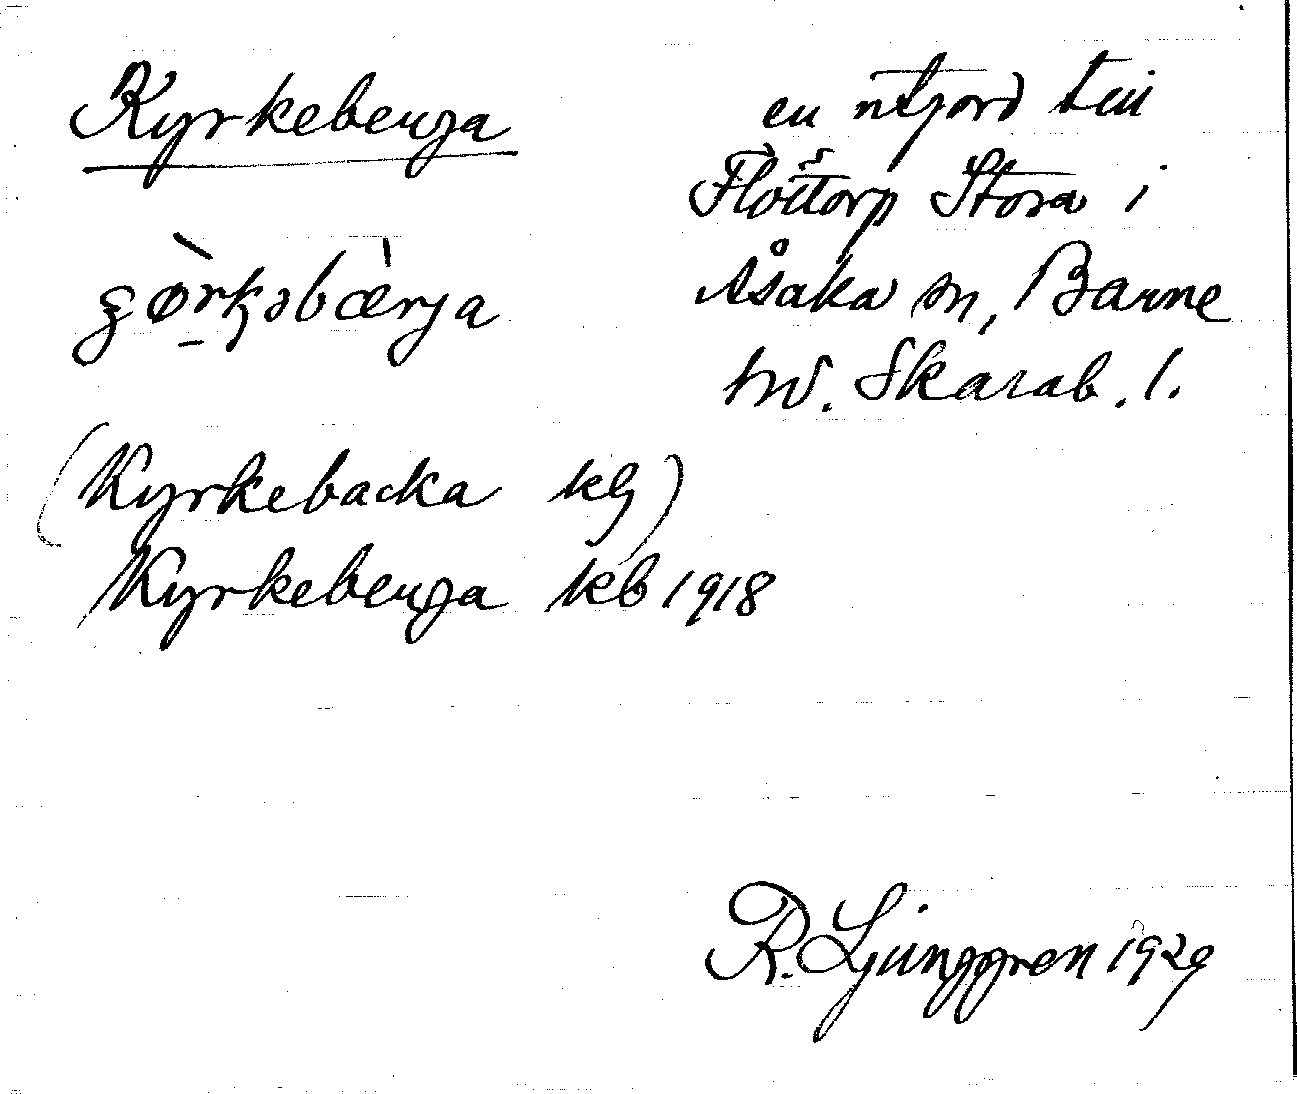 Kyrkeberga
en utjord till
Flöttorp Stora i
Åsaka sn, Barne
hd. Skarab. l.
(Kyrkebacka kg)
Kyrkeberga kb 1918
R. Ljunggren 1929